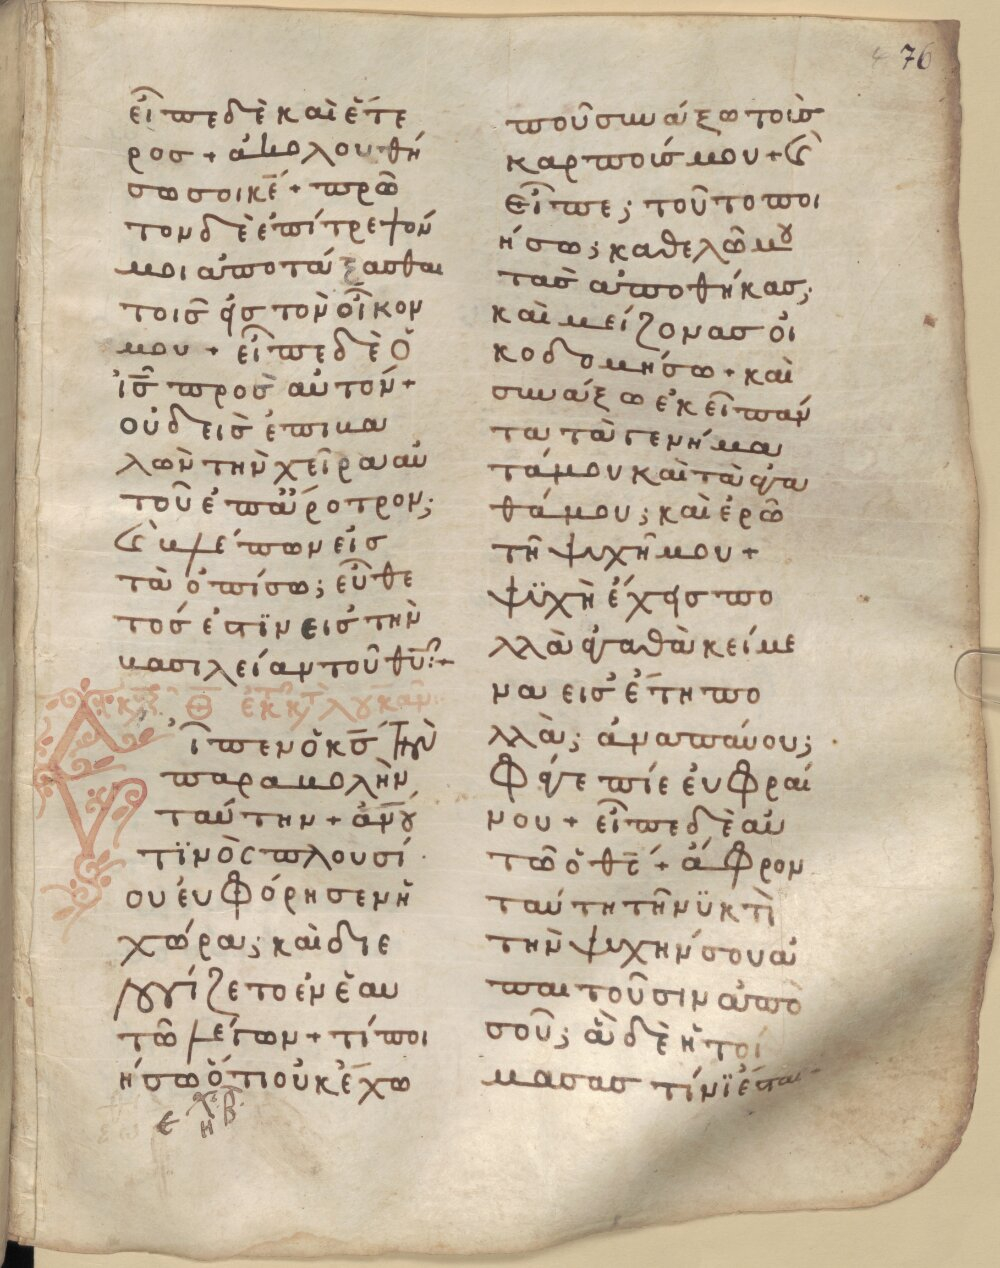 76
εἶπε δὲ καὶ ἕτε
ρος + ἀκολουθή
σω σοι κε̅ + πρῶ
τον δὲ ἐπίτρεψόν
μοι ἀποτάξασθαι
τοῖς εἰς τὸν οἶκον
μου + εἶπε δὲ ὁ
ις̅ πρὸς αὐτόν +
οὐδεὶς ἐπιβα
λὼν τὴν χεῖρα αὐ
τοῦ ἐπ' ἄροτρον;
καὶ βλέπων εἰς
τὰ ὀπίσω; εὔθε
τός ἐστιν εἰς τὴν
βασιλείαν τοῦ θυ̅ +
Θ ἐκ κατὰ λουκᾶν
ἶπεν ὁ κς̅ τὴν
παραβολὴν
ταύτην + ἀνου
τινὸς πλουσί
ου εὐφόρησεν ἡ
χώρα; καὶ διε
λογίζετο ἐν ἑαυ
τῶ λέγων + τί ποι
ήσω ὅτι οὐκ ἔχω
ποῦ συνάξω τοὺς
καρπούς μου + καὶ
εἶπε; τοῦτο ποι
ήσω; καθελῶ μου
τὰς ἀποθήκας;
καὶ μείζονας οἰ
κοδομήσω + καὶ
συνάξω ἐκεῖ πάν
τα τὰ γενήμα
τά μου καὶ τὰ ἀγα
θά μου; καὶ ἐρῶ
τῆ ψυχῆ μου +
ψυχὴ ἔχεις πο
λλὰ ἀγαθὰ κείμε
να εἰς ἔτη πο
λλὰ; ἀναπαύου;
φάγε πίε εὐφραί
νου + εἶπε δὲ αὐ
τῶ ὁ θς̅ + ἄφρον
ταύτη τῆ νυκτὶ
τὴν ψυχήν σου ἀ
παιτοῦσιν ἀπὸ
σοῦ; ἃ δὲ ἡτοί
μασας τίνι ἔσται